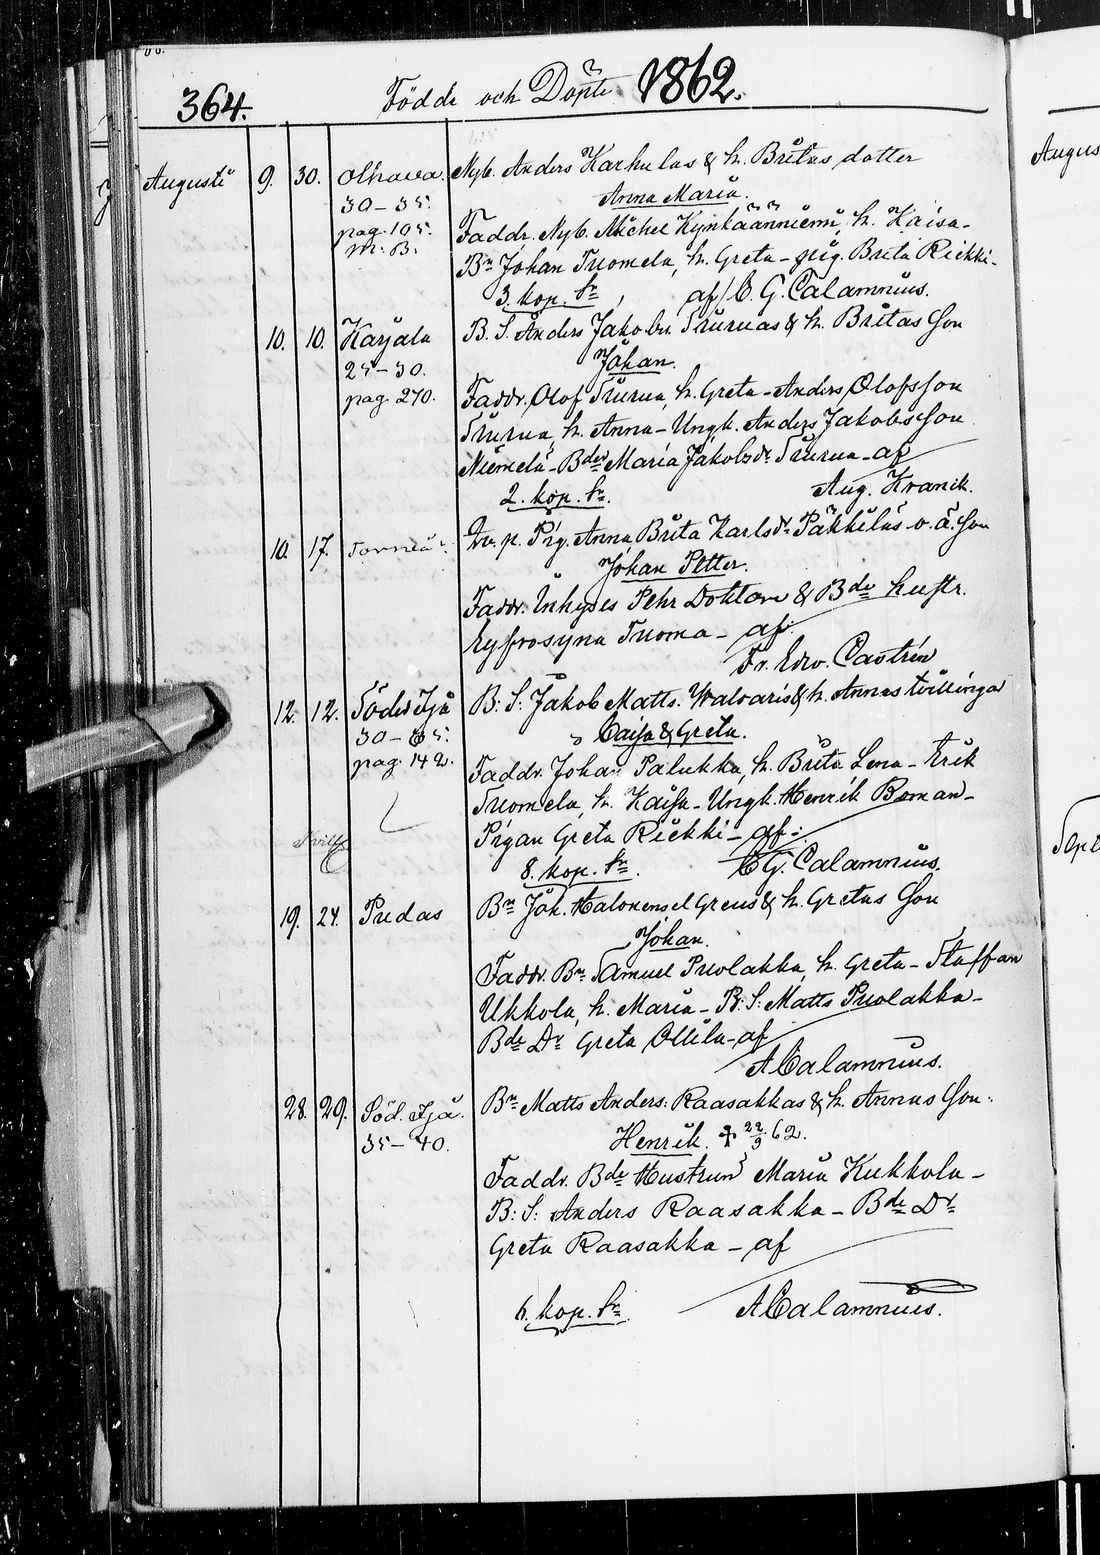 364. Födde och Döpte 1862.
Augusti 9. 30. Olhava. Nyb. Anders Karhulas & h. Britas dotter
30–35. Anna Maria.
pag. 105. Faddr. Nyb. Michel Kynkäänniemi, h. Kaisa–
m. B. Bn Johan Tuomela, h. Greta– pig. Brita Riekki–
3. kop. sr af C. G. Calamnius.
10. 10. Karjala B. S. Anders Jakobss. Siuruas & h. Britas Son
25–30. Johan.
pag. 270. Faddr. Olof Siurua, h. Greta–Anders Olofsson
Siurua, h. Anna– Ungk. Anders Jakobsson
Niemelä– Bde Maria Jakobsdr Siurua– af
2. kop. sr. Aug. Kranck.
10. 17. Torneå Pig. Anna Brita Karlsdr Päkkiläs o. ä. Son
Johan Petter.
Faddr. Inhyses Pehr Doktare & Bde hustr.
Eyfrosyna Tuoma– af
Fr. Edw. Castrén
12. 12. Söder Ijå B. S. Jakob Matts. Walvaris & h. Annas tvillingar
30–35. Caisa & Greta.
pag. 142. Faddr. Johan Palukka, h. Brita Lena– Erik
Tuomela, h. Kaisa– Ungk. Henrik Roman–
Pigan Greta Riekki– af
8. kop. sr. C G. Calamnius.
19. 24. Pudas Bn Joh. Halonens el Greus & h. Gretas Son
Johan.
Faddr. Bn Samuel Puolakka, h. Greta– Staffan
Ukkola, h. Maria– B: S: Matts Puolakka–
Bde Dr Greta Ollila– af
A Calamnius.
28. 29. Söd. Ijå. Bn Matts Anders: Raasakkas & h. Annas Son.
35–40. Henrik. ✝ 22/9 62.
Faddr. Bde Hustrun Maria Kukkola–
B: S: Anders Raasakka– Bde Dr
Greta Raasakka– af
6. kop. sr A Calamnius.